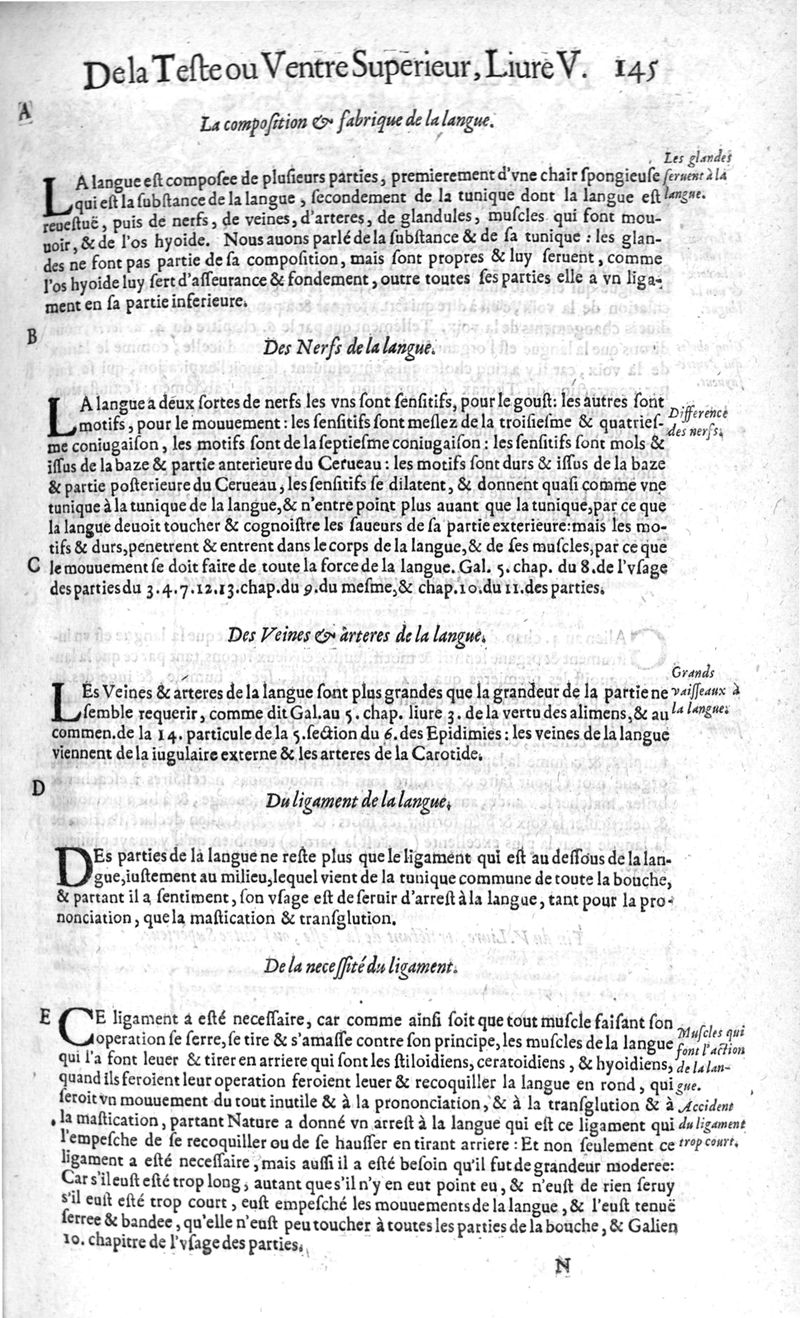 De la Teſte ou Ventre Superieur, Liure V. 145
A
La compoſition & fabrique de la langue.
LA langue eſt compoſee de pluſieurs parties, premierement d'vne chair ſpongieuſe
qui eſt la ſubſtance de la langue, ſecondement de la tunique dont la langue eſt
reueſtuë, puis de nerfs, de veines, d'arteres, de glandules, muſcles qui font mou-
uoir, & de l'os hyoide. Nous auons parlé de la ſubſtance & de ſa tunique : les glan-
des ne font pas partie de ſa compoſition, mais ſont propres & luy ſeruent, comme
l'os hyoide luy ſert d'aſſeurance & fondement, outre toutes ſes parties elle a vn liga-
ment en ſa partie inferieure.
Les glandes
ſeruent à la
langue.
B
Des Nerfs de la langue.
LA langue a deux ſortes de nerfs les vns ſont ſenſitifs, pour le gouſt: les autres ſont
motifs, pour le mouuement : les ſenſitifs ſont meſlez de la troiſieſme & quatrieſ-
me coniugaiſon, les motifs ſont de la ſeptieſme coniugaiſon : les ſenſitifs ſont mols &
iſſus de la baze & partie anterieure du Cerueau : les motifs ſont durs & iſſus de la baze
& partie poſterieure du Cerueau, les ſenſitifs ſe dilatent, & donnent quaſi comme vne
tunique à la tunique de la langue, & n'entre point plus auant que la tunique, par ce que
la langue deuoit toucher & cognoiſtre les ſaueurs de ſa partie exterieure: mais les mo-
tifs & durs, penetrent & entrent dans le corps de la langue, & de ſes muſcles, par ce que
C
le mouuement ſe doit faire de toute la force de la langue. Gal. 5. chap. du 8. de l'vſage
des parties du 3.4.7.12.13. chap. du 9. du meſme, & chap. 10. du 11. des parties.
Difference
des nerfs.
Des Veines & arteres de la langue.
LEs Veines & arteres de la langue ſont plus grandes que la grandeur de la partie ne
ſemble requerir, comme dit Gal. au 5. chap. liure 3. de la vertu des alimens, & au
commen. de la 14. particule de la 5. ſection du 6. des Epidimies : les veines de la langue
viennent de la iugulaire externe & les arteres de la Carotide.
Grands
vaiſſeaux à
la langue.
D
Du ligament de la langue.
DEs parties de la langue ne reſte plus que le ligament qui eſt au deſſous de la lan-
gue, iuſtement au milieu, lequel vient de la tunique commune de toute la bouche,
& partant il a ſentiment, ſon vſage eſt de ſeruir d'arreſt à la langue, tant pour la pro-
nonciation, que la maſtication & tranſglution.
De la neceſſité du ligament.
E
CE ligament a eſté neceſſaire, car comme ainſi ſoit que tout muſcle faiſant ſon
operation ſe ſerre, ſe tire & s'amaſſe contre ſon principe, les muſcles de la langue
qui l'a font leuer & tirer en arriere qui ſont les ſtiloidiens, ceratoidiens, & hyoidiens,
quand ils feroient leur operation feroient leuer & recoquiller la langue en rond, qui
ſeroit vn mouuement du tout inutile & à la prononciation, & à la tranſglution & à
la maſtication, partant Nature a donné vn arreſt à la langue qui eſt ce ligament qui
l'empeſche de ſe recoquiller ou de ſe hauſſer en tirant arriere : Et non ſeulement ce
ligament a eſté neceſſaire, mais auſſi il a eſté beſoin qu'il fut de grandeur moderee:
Car s'il euſt eſté trop long, autant que s'il n'y en eut point eu, & n'euſt de rien ſeruy
s'il euſt eſté trop court, euſt empeſché les mouuements de la langue, & l'euſt tenuë
ſerree & bandee, qu'elle n'euſt peu toucher à toutes les parties de la bouche, & Galien
10. chapitre de l'vſage des parties.
Muſcles qui
font l'action
de la lan-
gue.
Accident
du ligament
trop court.
N